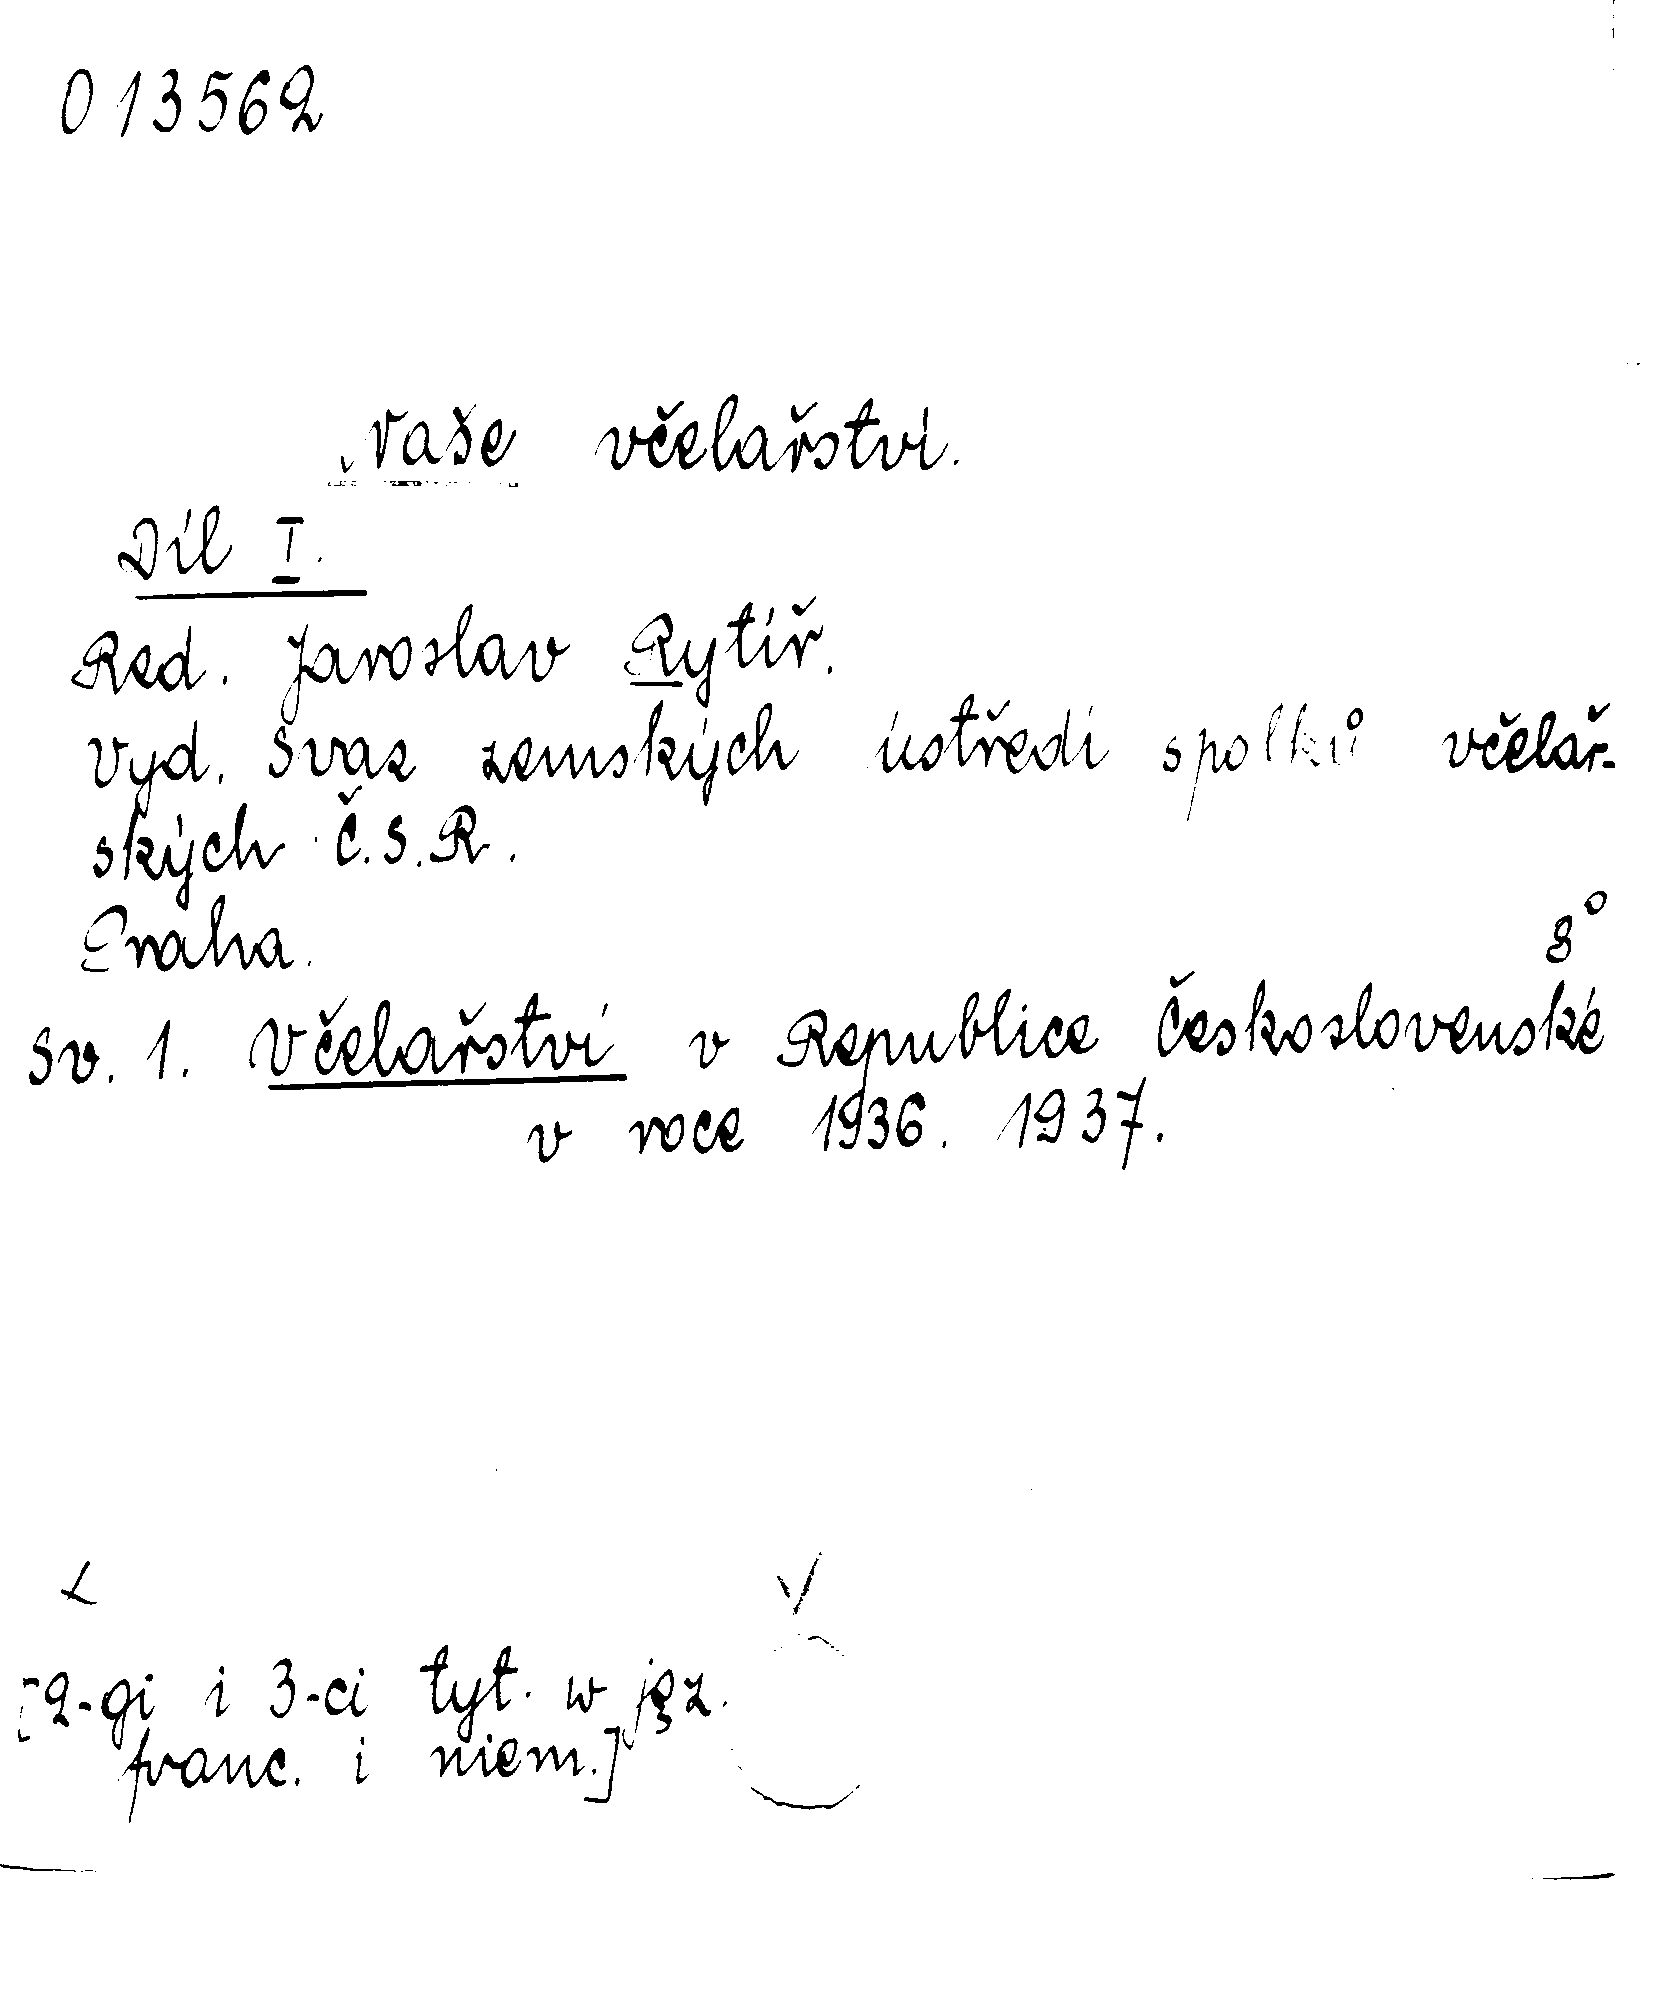 013562
Naše včelařství.
Díl I.
Red. Jaroslav Rytíř.
Vyd. Svaz zemských ústředí spolků včelař-
ských Č.S.R.
Praha. 8°
Sv. 1. Včelařství v Republice Československé
v roce 1936. 1937.
[2-gi i 3-ci tyt. w jęz.
franc. i niem.]